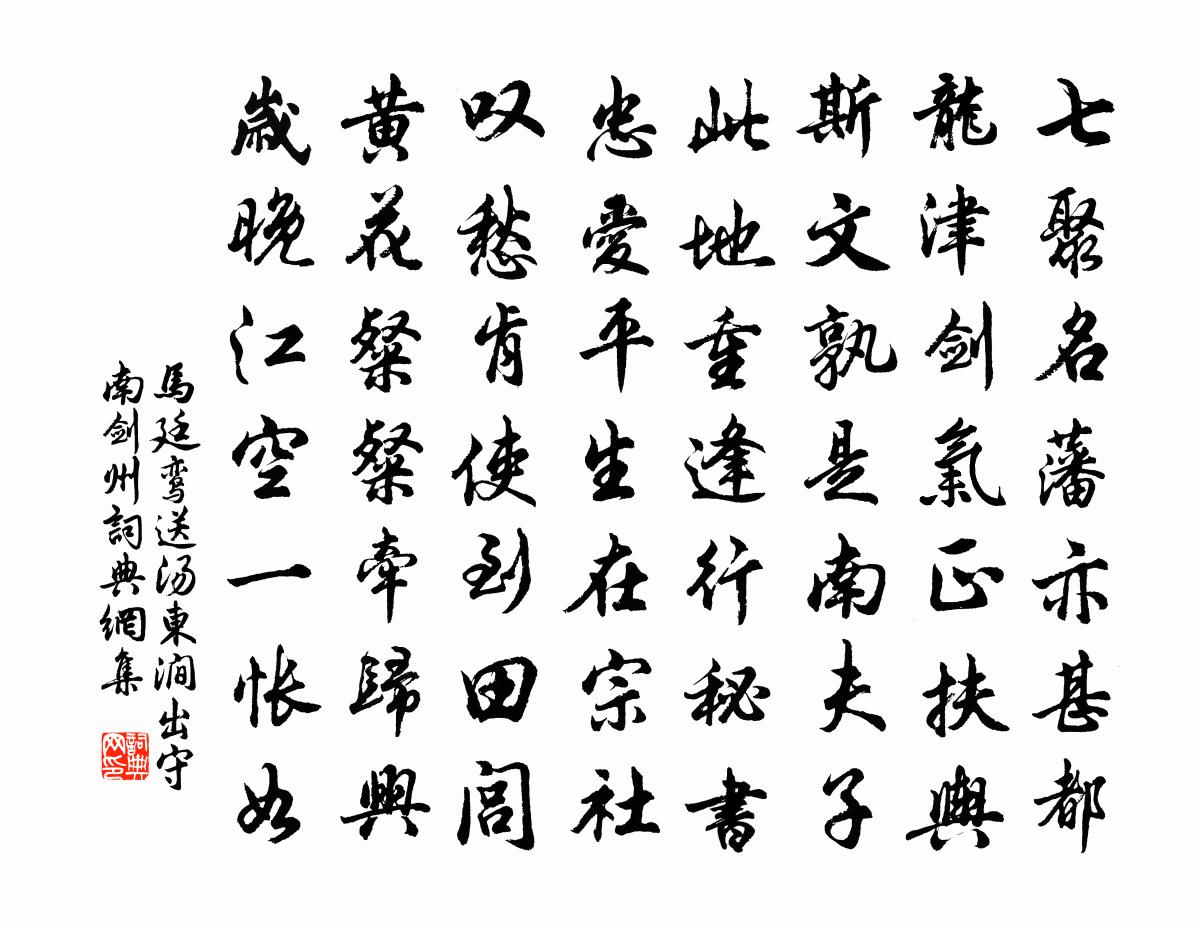 七聚名藩亦甚都
龍津剑氣正扶輿
斯文孰是南夫子
此地重逢行秘書
忠愛平生在宗社
叹愁肯使到田閭
黄花粲粲牽歸興
歲晚江空一怅如
馬廷鸾送汤東澗出守
南剑州詞典網集
詞典网印